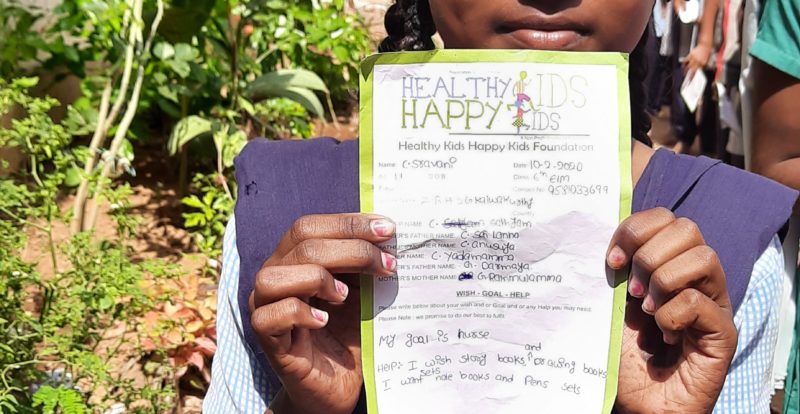 HEALTHY KIDS
HAPPY KIDS
Healthy Kids Happy Kids Foundation
Name C. Sravani Date 10-2-2020
11 Class 6th E/M
Contact No 9581033699
Z.P.H.S
NAME: C. sathyam
FATHER NAME: C. Sai Lanna
MOTHER NAME: C. anusuya
NAME: C. Yadamamma
MOTHER'S FATHER NAME: G. Darmaya
MOTHER'S MOTHER NAME: G. Rathnwamma
WISH - GOAL - HELP
Please write below about your wish and or Goal and or any Help you may need.
Please Note : we promise to do our best to fulfil
My goal is nurse
and
HELP:- I wish story books, drawing books
sets
I want note books and Pens sets